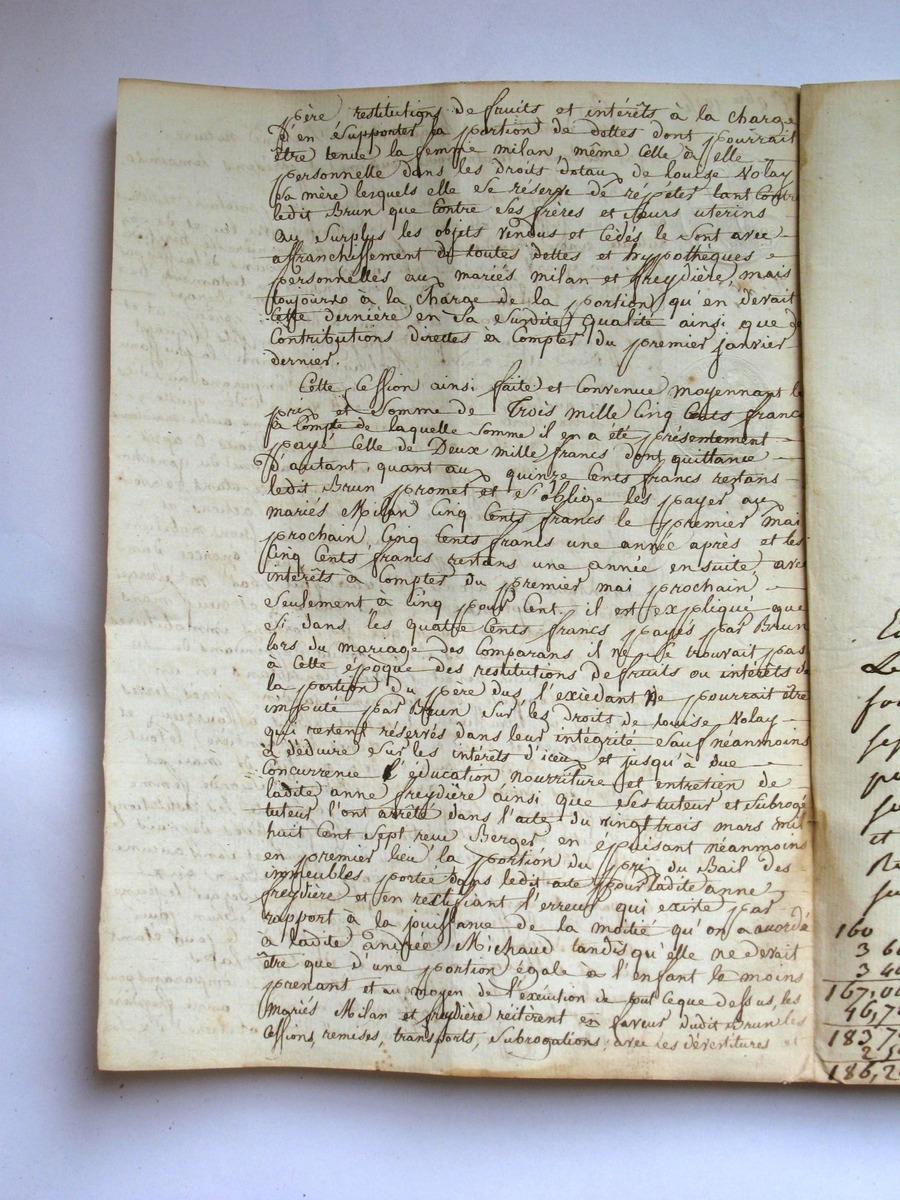 père restitutions de fruits et intérêts à la charge
d'en supporter la portion de dottes dont pourrait
être tenue la femme milan, même celle à elle
personnelle dans les droits dotaux de louise Nolay
sa mère lesquels elle se réserve de répéter tant contre
ledit Brun que contre ses frères et sœurs uterins
au surplus les objets vendus et cédés le sont avec
affranchissement de toutes dettes et hypothèques
personnelles aux mariés milan et freydière, mais
toujours à la charge de la portion qu'en devait
cette dernière en sa susdite qualité ainsi que de
Contributions directes à compter du premier janvier
dernier.
Cette Cession ainsi faite et convenue moyennant le
prix et somme de Trois mille cinq cents francs
à compte de laquelle somme il en a été présentement
payé celle de Deux mille francs dont quittance
d'autant, quant aux quinze cents francs restans
ledit Brun promet et s'oblige les payer aux
mariés Milan cinq cents francs le premier mai
prochain, cinq cents francs une année après et les
cinq cents francs restans une année en suite avec
intérêts à compter du premier mai prochain
seulement à cinq pour cent. il est expliqué que
si dans les quatre cents francs payés par Brun
lors du mariage des comparans il ne se trouvait pas
à cette époque des restitutions de fruits ou intérêts de
la portion du père dus, l'exièdant ne pourrait être
imputé par Brun sur les droits de louise Nolay
qui restent réservés dans leur intégrité sauf néanmoins
à déduire sur les intérêts d'iceux et jusqu'à due
concurrence l'éducation nourriture et entretien de
ladite anne freydière ainsi que ses tuteur et subrogé
tuteur l'ont arrêté dans l'acte du vingt trois mars mil
huit cent sept reçu Berger en épuisant néanmoins
en premier lieu la portion du prix du Bail des
immeubles portée dans ledit acte pour ladite anne
freydière et en rectifiant l'erreur qui existe par
rapport à la jouissance de la moitié qu'on a accordé
à ladite andrée Michaud tandis qu'elle ne devait
être que d'une portion égale à l'enfant le moins
prenant et au moyen de l'exécution de tout ceque dessus, les
mariés Milan et freydière reitèrent en faveur dudit Brun les
cessions, remises, transports, subrogations, avec les dévestitures et
160
167,0
183,7
186,2